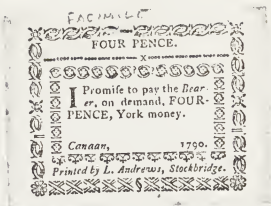 FACIMILE
FOUR PENCE.
X
I Promise to pay the Bear-
er, on demand, FOUR-
PENCE, York money.
Canaan, 1790.
Printed by L. Andrews, Stockbridge.